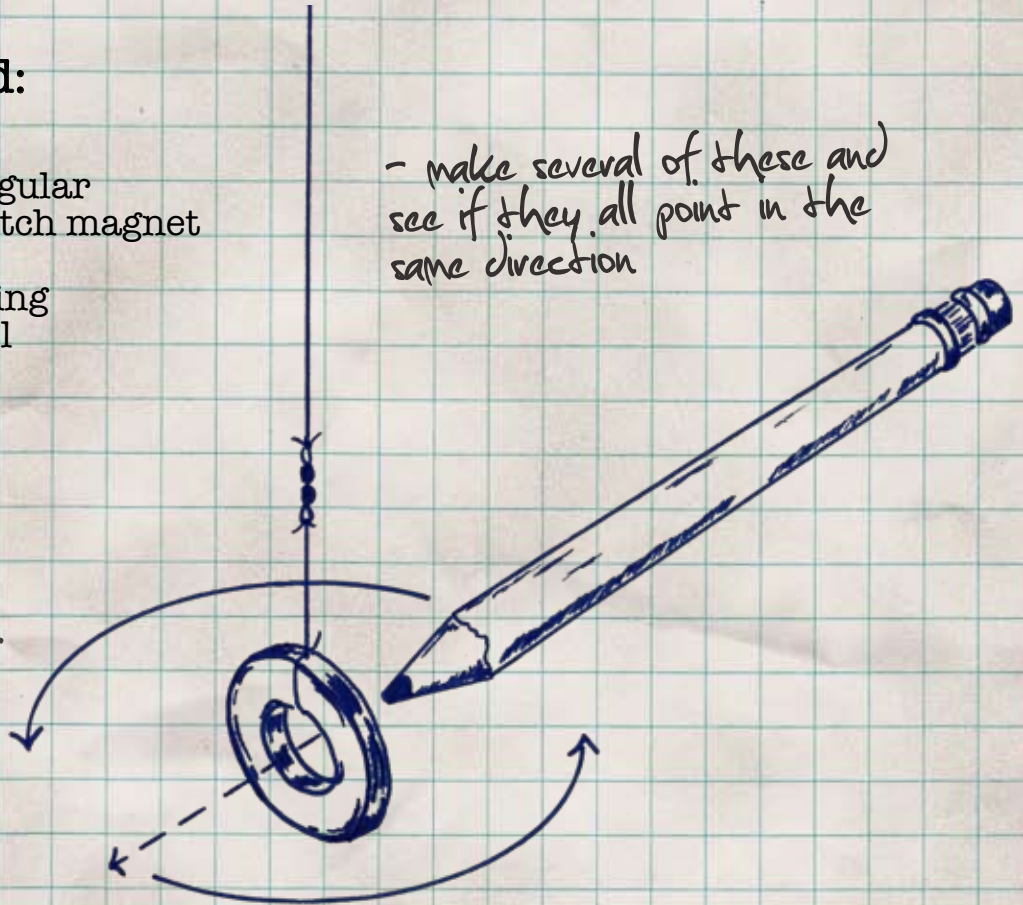 d:
gular
tch magnet
ing
l
- make several of these and
see if they all point in the
same direction